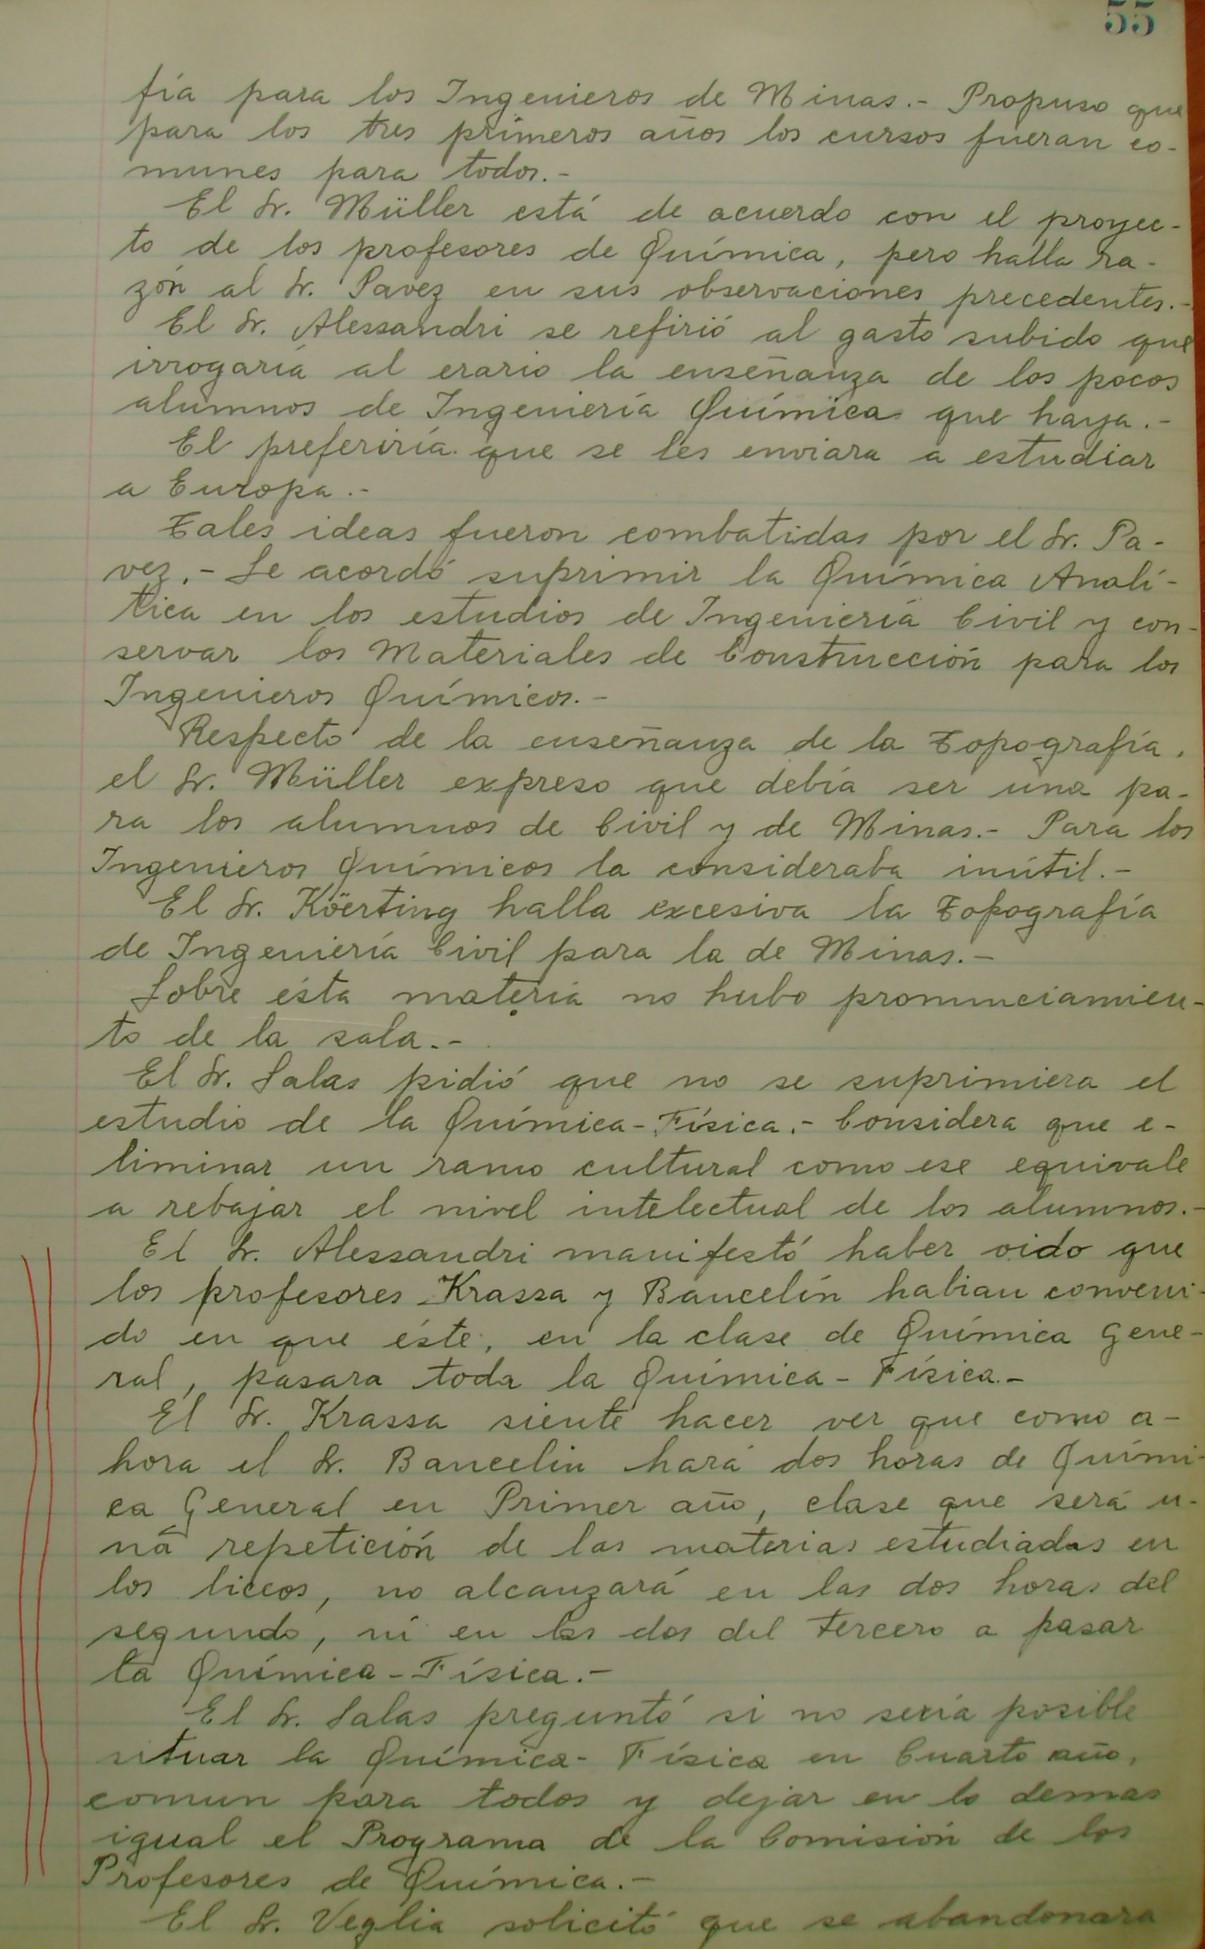 55
fía para los Ingenieros de Minas.- Propuso que
para los tres primeros años los cursos fueran co-
munes para todos.-
El Sr. Müller está de acuerdo con el proyec-
to de los profesores de Química, pero halla ra-
zón al Sr. Pavez en sus observaciones precedentes.-
El Sr. Alessandri se refirió al gasto subido que
irrogaría al erario la enseñanza de los pocos
alumnos de Ingeniería Química que haya.-
El preferiría que se les enviara a estudiar
a Europa.-
Tales ideas fueron combatidas por el Sr. Pa-
vez.- Se acordó suprimir la Química Analí-
tica en los estudios de Ingeniería Civil y con-
servar los Materiales de Construcción para los
Ingenieros Químicos.-
Respecto de la enseñanza de la Topografía,
el Sr. Müller expreso que debía ser una pa-
ra los alumnos de Civil y de Minas.- Para los
Ingenieros Químicos la consideraba inútil.-
El Sr. Köerting halla excesiva la Topografía
de Ingeniería Civil para la de Minas.-
Sobre ésta materia no hubo pronunciamien-
to de la sala.-
El Sr. Salas pidió que no se suprimiera el
estudio de la Química-Física.- Considera que e-
liminar un ramo cultural como ese equivale
a rebajar el nivel intelectual de los alumnos.-
El Sr. Alessandri manifestó haber oido que
los profesores Krassa y Bancelín habian conveni-
do en que éste, en la clase de Química Gene-
ral, pasara toda la Química-Física.-
El Sr. Krassa siente hacer ver que como a-
hora el Sr. Bancelin hará dos horas de Quími-
ca General en Primer año, clase que será u-
na repetición de las materias estudiadas en
los liceos, no alcanzará en las dos horas del
segundo, ni en las dos del tercero a pasar
la Química-Física.-
El Sr. Salas preguntó si no sería posible
situar la Química-Física en Cuarto año,
comun para todos y dejar en lo demas
igual el Programa de la Comisión de los
Profesores de Química.-
El Sr. Veglia solicitó que se abandonara